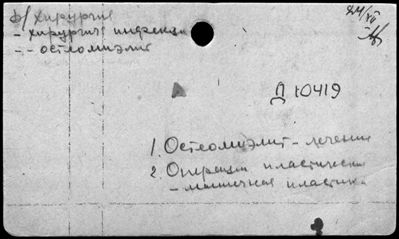 ф/ Хирургия
- хирургия инфекци
- - остеомиэлит
Д 10419
1. Остеомиэлит - лечение
2. Операции пластически
- мышечная пластика